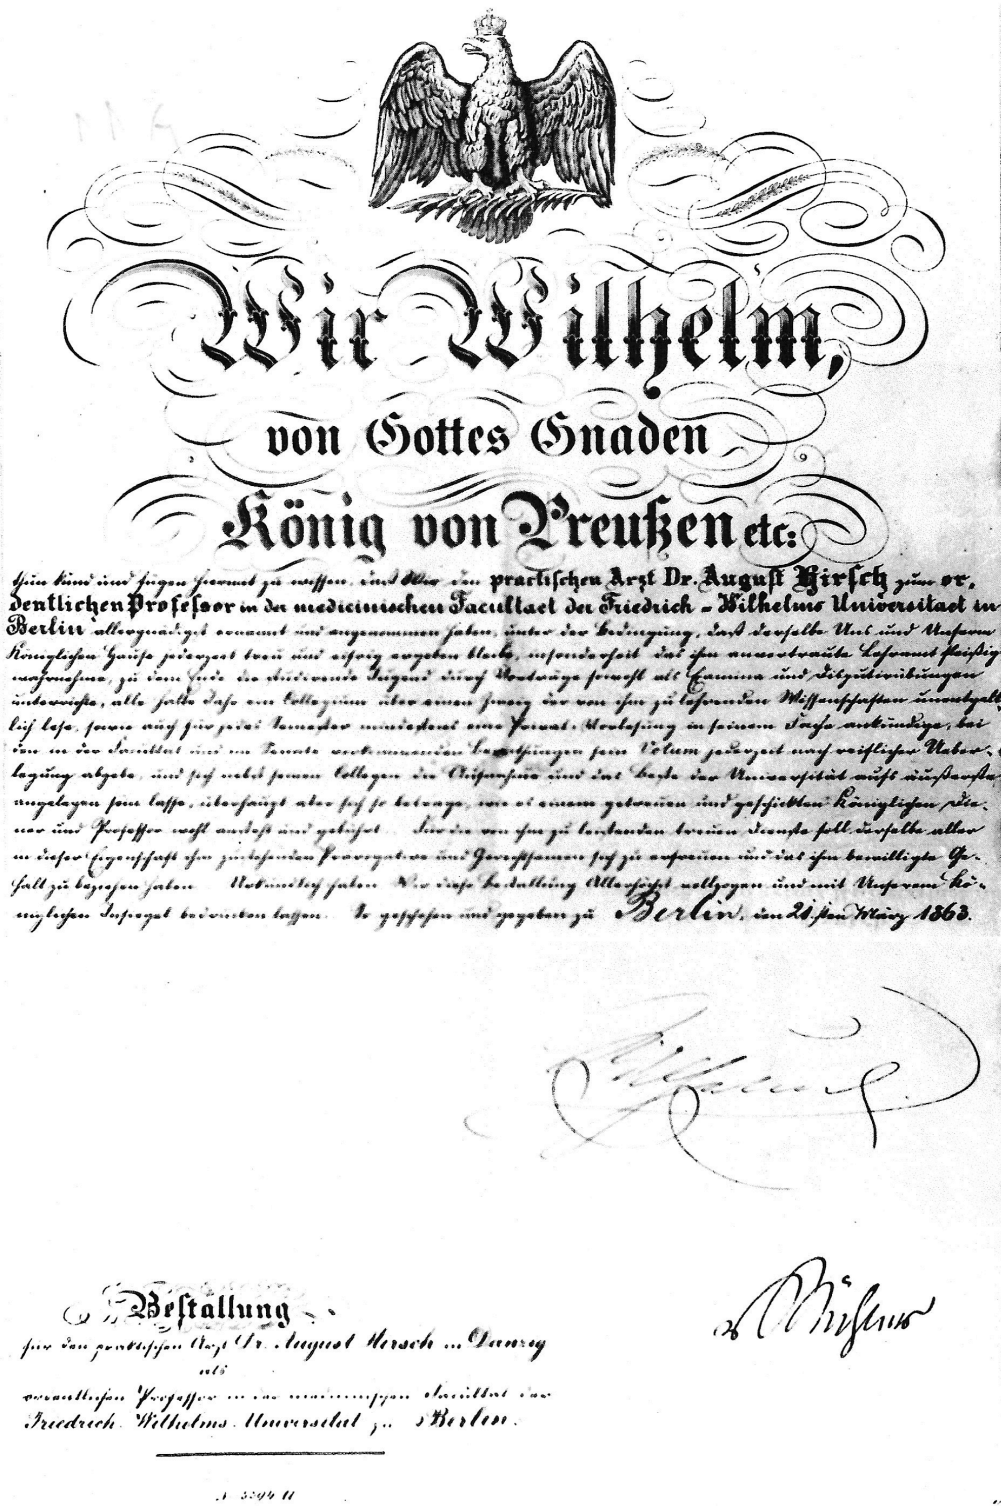 Wir Wilhelm,
von Gottes Gnaden
König von Preußen etc:
thun kund und fügen hiermit zu wissen, daß Wir den practischen Arzt Dr. August Hirsch zum or-
dentlichen Professor in der medicinischen Facultaet der Friedrich - Wilhelms Universitaet in
Berlin allergnädigst ernannt und angenommen haben, unter der Bedingung, daß derselbe Uns und Unserm
Königlichen Hause jederzeit treu und eifrig ergeben bleibe, insonderheit das ihm anvertraute Lehramt fleißig
wahrnehme, zu dem Ende die studirende Jugend durch Vorträge sowohl als Examina und Disputirübungen
unterrichte, alle halbe Jahr ein Collegium über einen Zweig der von ihm zu lehrenden Wissenschaften unentgelt-
lich lese, sowie auch für jedes Semester mindestens eine Privat-Vorlesung in seinem Fache ankündige, bei
den in der Facultät und im Senate vorkommenden Berathungen sein Votum jederzeit nach reiflicher Ueber-
legung abgebe, und sich nebst seinen Collegen die Aufnahme und das Beste der Universität aufs äußerste
angelegen sein lasse, überhaupt aber sich so betrage, wie es einem getreuen und geschickten Königlichen Die-
ner und Professor wohl ansteht und gebührt. Für die von ihm zu leistenden treuen Dienste soll derselbe aller
in dieser Eigenschaft ihm zustehenden Prärogative und Gerechtsamen sich zu erfreuen und das ihm bewilligte Ge-
halt zu beziehen haben. Urkundlich haben Wir diese Bestallung Allerhöchst vollzogen und mit Unserem Kö-
niglichen Insiegel bedrucken lassen. So geschehen und gegeben zu Berlin, den 21.sten März 1863.
Wilhelm
v Mühler
Bestallung
für den praktischen Arzt Dr. August Hirsch in Danzig
als
ordentlichen Professor in der medicinischen Facultät der
Friedrich-Wilhelms-Universität zu Berlin.